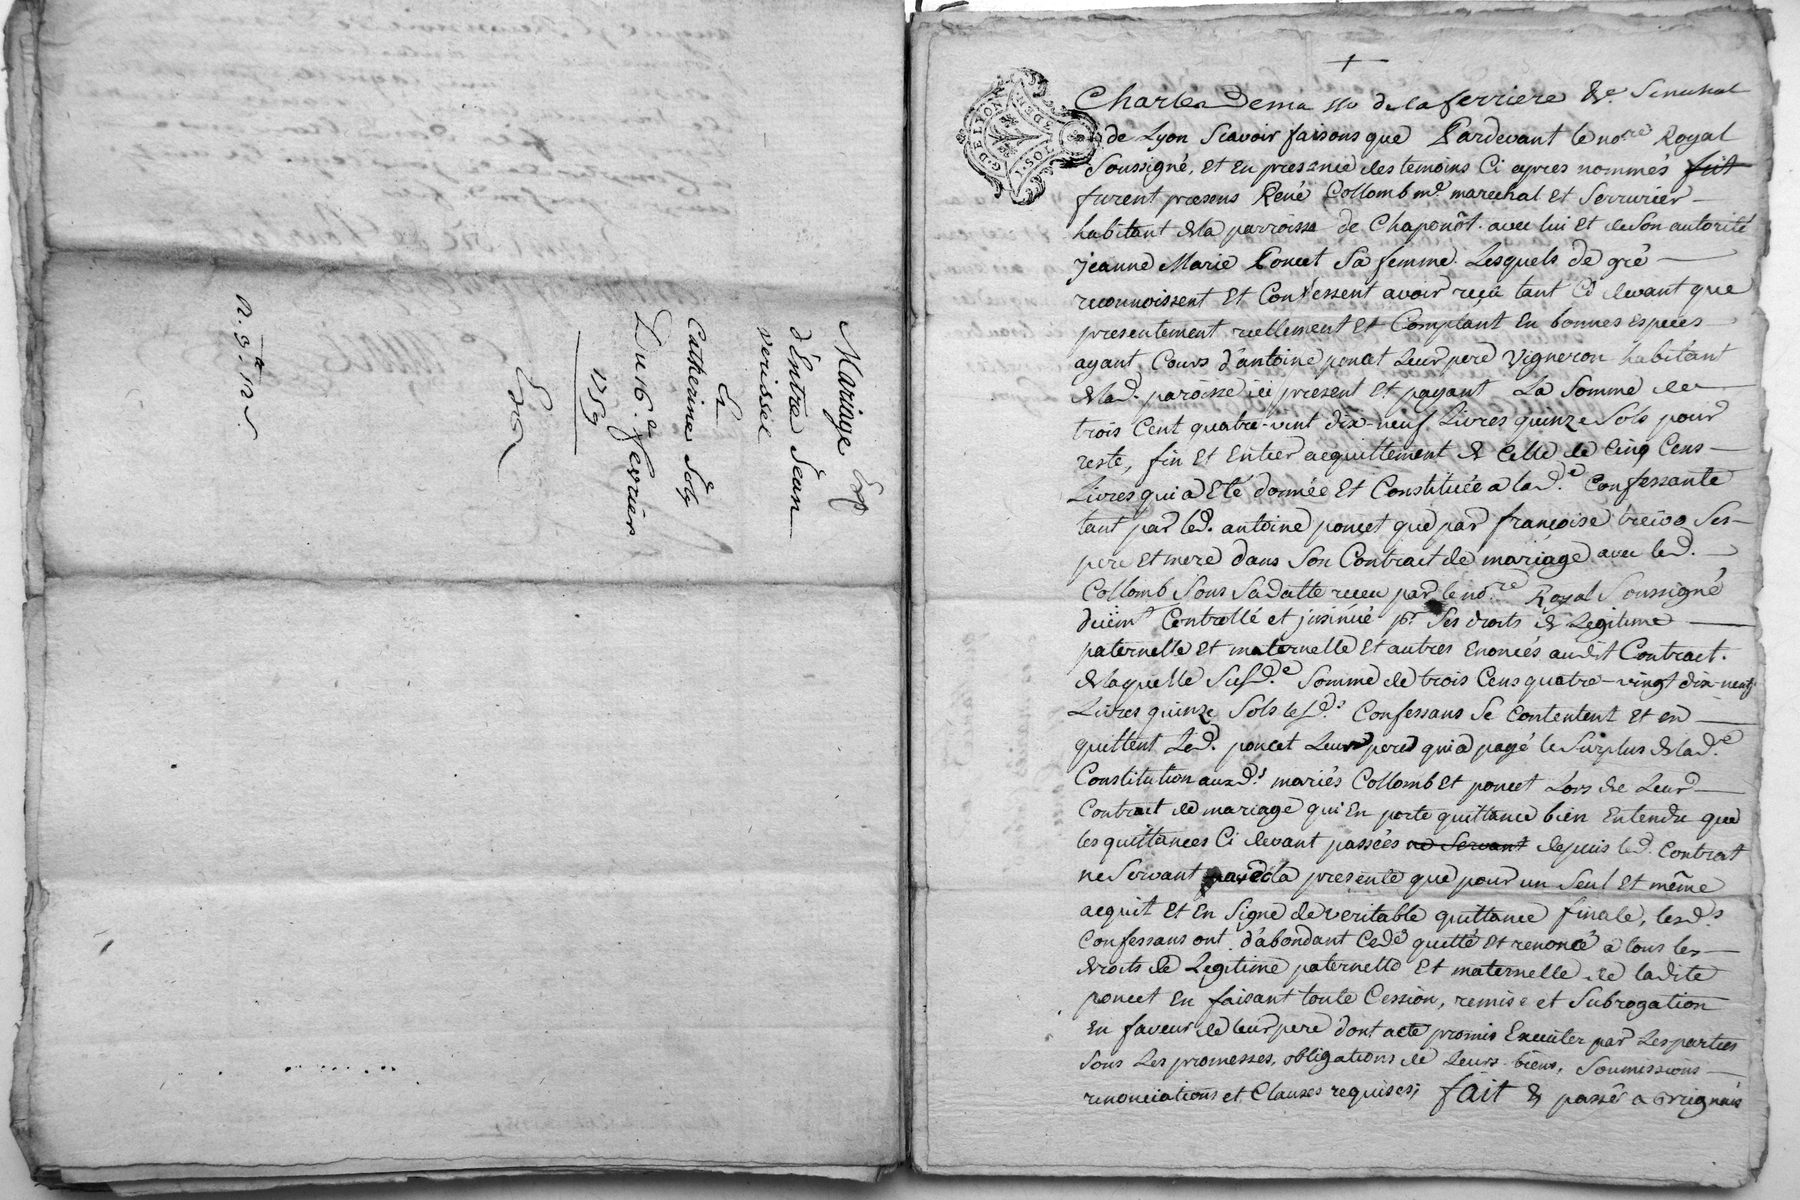 Mariage Ex
d'Entre Jean
verissel
Et
Catherine
Du 16.e fevrier
1759
Ex
n. 9 12 s
+
G. DE LYON
Charles Dema sso de la ferriere &c. Senechal
de Lyon Scavoir faisons que Pardevant le nore Royal
Soussigné, et en presence des temoins Ci apres nommés fut
furent presens René Collomb md. marechal et Serrurier
habitant de la parroisse de Chaponôt. avec lui et de Son autorité
Jeanne Marie Poncet Sa femme. Lesquels de gré
reconnoissent et Confessent avoir reçu tant Ci devant que
presentement reellement et Comptant en bonnes especes
ayant Cours d'antoine poncet Leur pere Vigneron habitant
de lad. paroisse ici present et payant La Somme de
trois Cent quatre-vint dix-neuf Livres quinze Sols pour
reste, fin et Entier acquittement de Celle de Cinq Cens
Livres qui a Eté donnée et Constituée a lad.e Confessante
tant par led. antoine poncet que par françoise Ses
pere et mere dans Son Contract de mariage avec led.
Collomb Sous Sa datte receu par le no.re Royal Soussigné
duëm.t Controllé et jnsinüé pr. Ses droits de Legitime
paternelle et maternelle et autres Enoncés audit Contract.
de laquelle Susd.e Somme de trois Cens quatre-vingt dix-neuf
Livres quinze Sols lesd.s Confessans Se Contentent et en
quittent Led. poncet Leur pere qui a payé le Surplus de lad.e
Constitution auxd.s mariés Collomb et poncet Lors de Leur
Contract de mariage qui en porte quittance bien Entendu que
les quittances Ci devant passées ne Servant depuis led. Contract
ne Servant avec la presente que pour un Seul et même
acquit et en Signe de veritable quittance finale, lesd.s
Confessans ont d'abondant Cedé quitté et renoncé à tous les
droits de Legitime paternelle et maternelle de ladite
poncet en faisant toute Cession, remise et Subrogation
en faveur de leur pere dont acte promis Executer par Les parties
Sous Les promesses, obligations de Leurs biens, Soumissions
renonciations et Clauses requises; fait & passé a Brignais